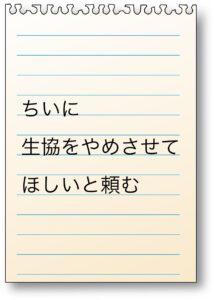 ちいに
生協をやめさせて
ほしいと頼む